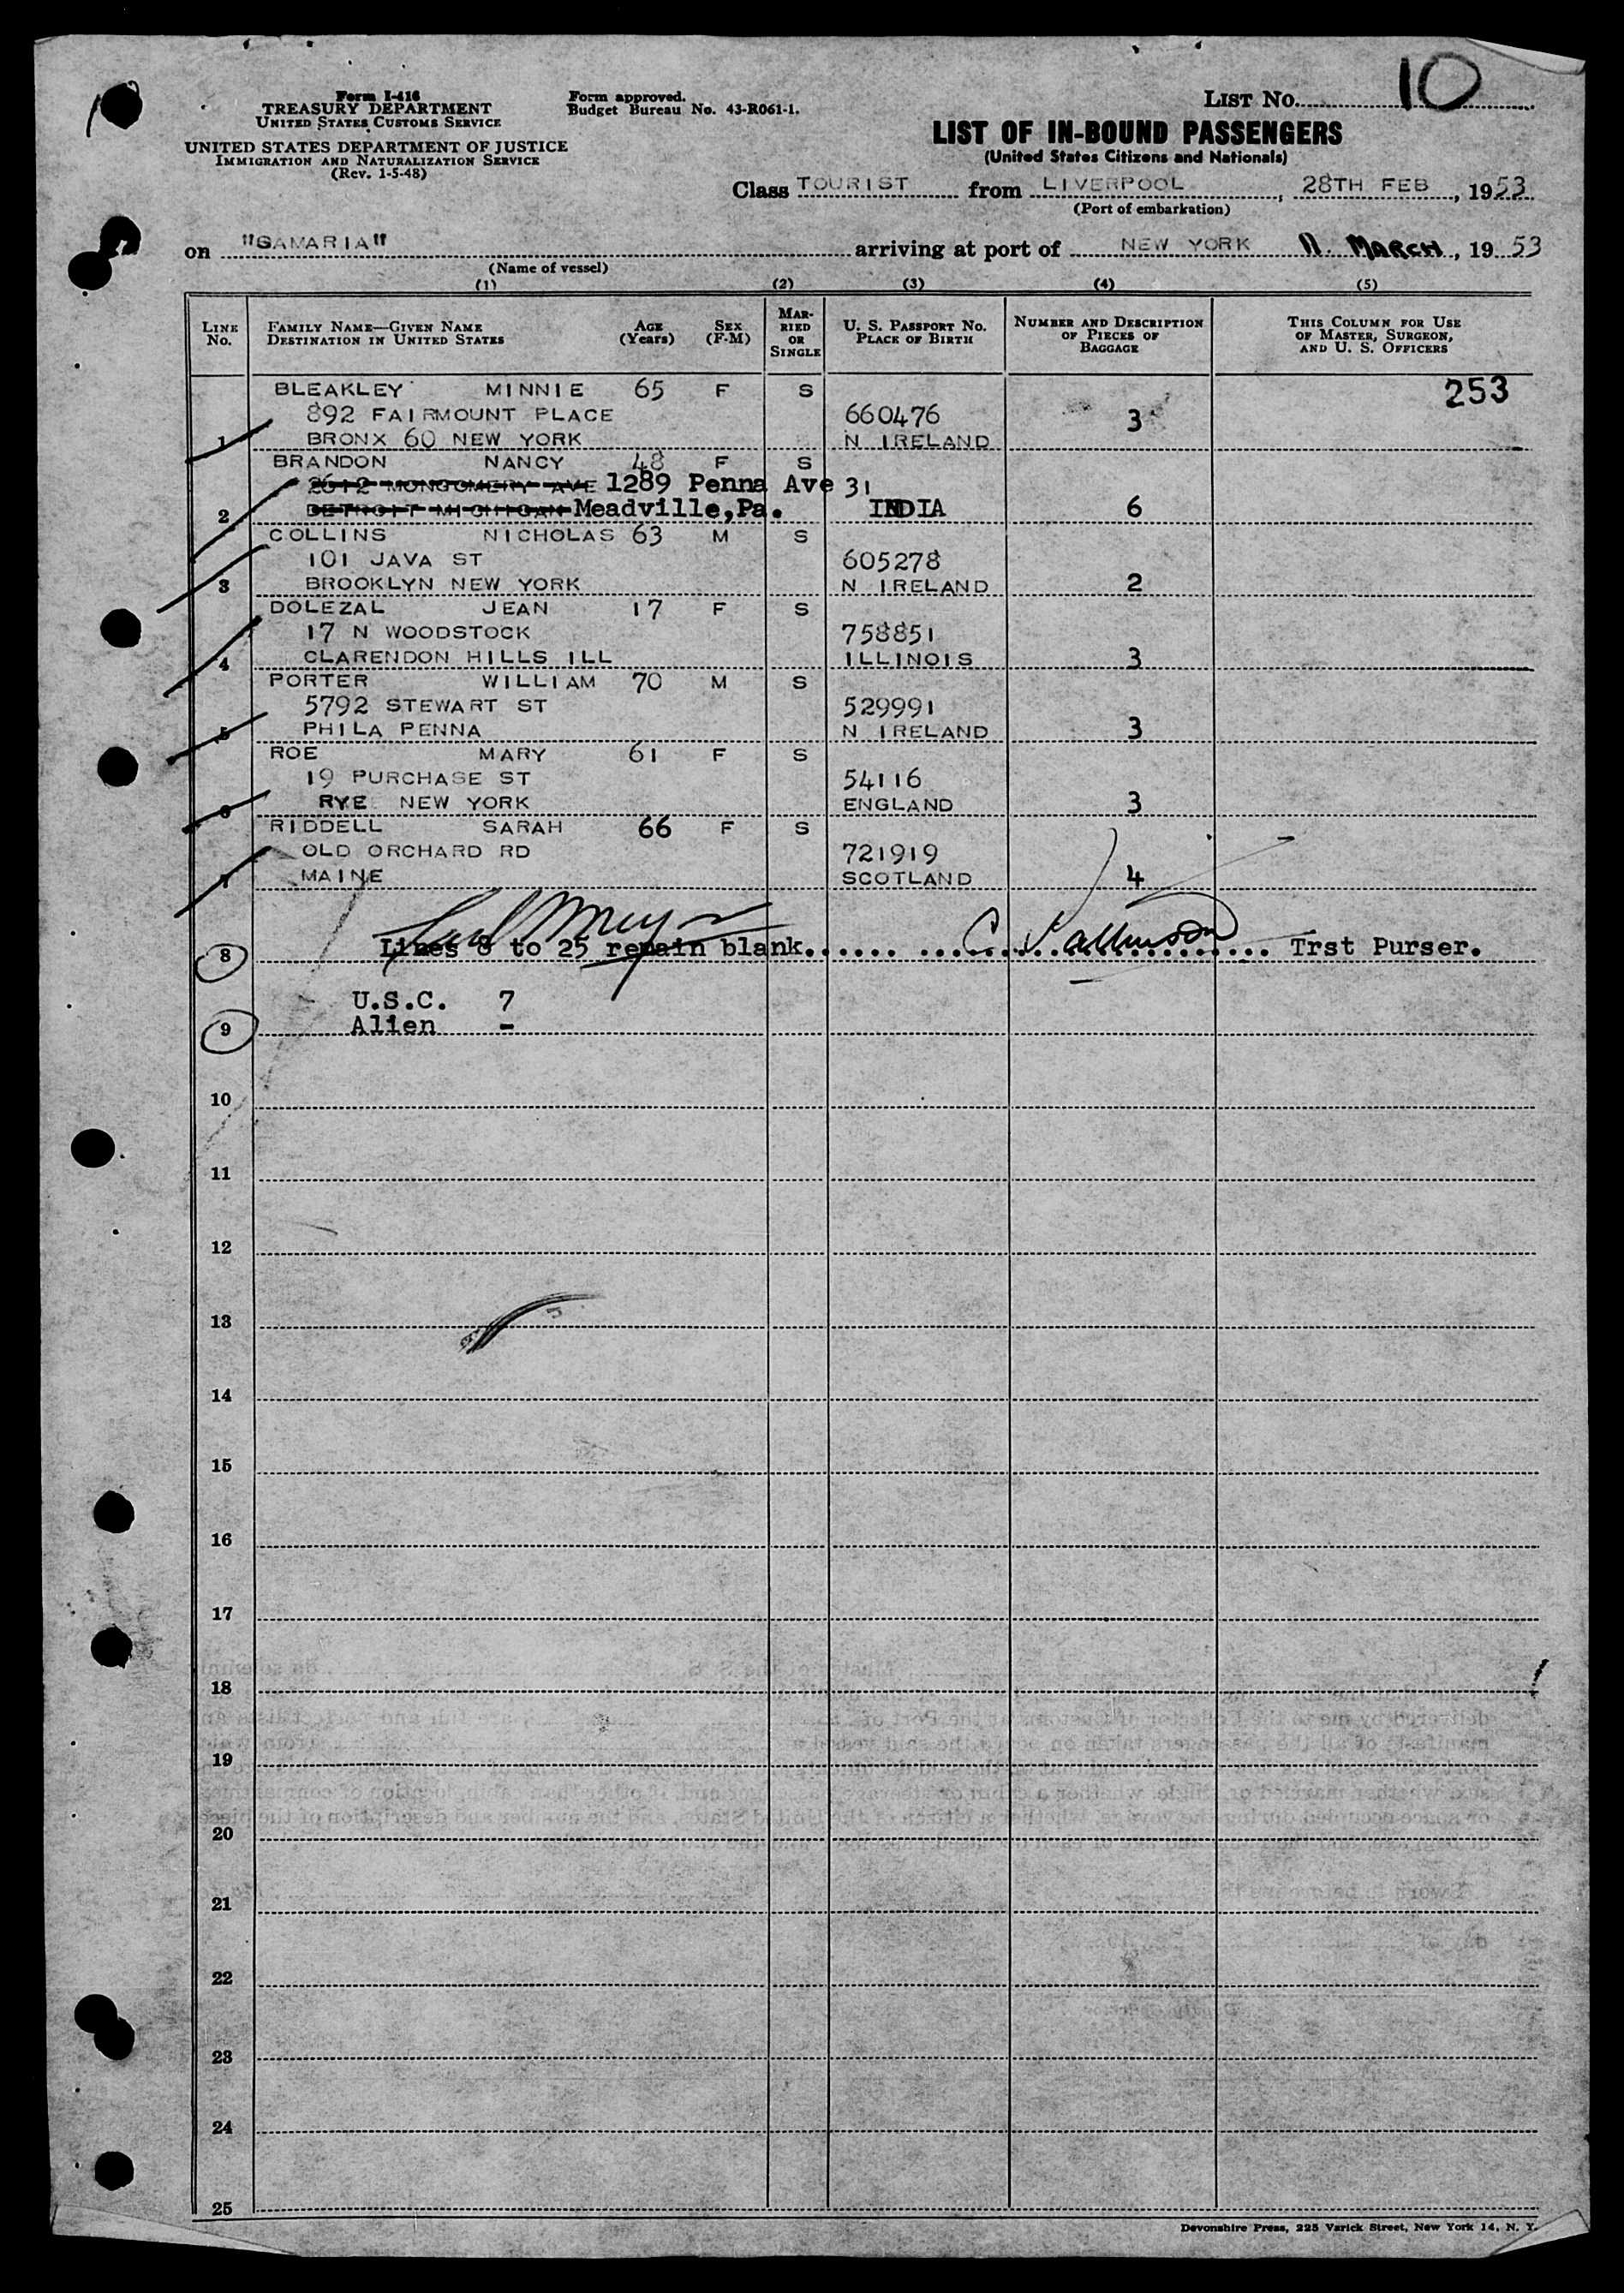 10
Form I-416
TREASURY DEPARTMENT
UNITED STATES CUSTOMS SERVICE
UNITED STATES DEPARTMENT OF JUSTICE
IMMIGRATION AND NATURALIZATION SERVICE
(Rev. 1-5-48)
Form approved.
Budget Bureau No. 43-R061-1.
LIST NO. 10
LIST OF IN-BOUND PASSENGERS
(United States Citizens and Nationals)
Class TOURIST from LIVERPOOL, 28TH FEB, 1953
(Port of embarkation)
on "SAMARIA" arriving at port of NEW YORK 11. MARCH, 1953
(Name of vessel)
(1) (2) (3) (4) (5)
LINE NO. FAMILY NAME—GIVEN NAME DESTINATION IN UNITED STATES AGE (Years) SEX (F-M) MARRIED OR SINGLE U. S. PASSPORT NO. PLACE OF BIRTH NUMBER AND DESCRIPTION OF PIECES OF BAGGAGE THIS COLUMN FOR USE OF MASTER, SURGEON, AND U. S. OFFICERS
BLEAKLEY MINNIE 65 F S 253
892 FAIRMOUNT PLACE 660476 3
1 BRONX 60 NEW YORK N IRELAND
BRANDON NANCY 48 F S
2612 MONTGOMERY AVE 1289 Penna Ave 31
2 DETROIT MICHIGAN Meadville,Pa. INDIA 6
COLLINS NICHOLAS 63 M S
101 JAVA ST 605278
3 BROOKLYN NEW YORK N IRELAND 2
DOLEZAL JEAN 17 F S
17 N WOODSTOCK 758851
4 CLARENDON HILLS ILL ILLINOIS 3
PORTER WILLIAM 70 M S
5792 STEWART ST 529991
5 PHILA PENNA N IRELAND 3
ROE MARY 61 F S
19 PURCHASE ST 54116
6 RYE NEW YORK ENGLAND 3
RIDDELL SARAH 66 F S
OLD ORCHARD RD 721919
7 MAINE SCOTLAND 4
8 Lines 8 to 25 remain blank...... Trst Purser.
U.S.C. 7
9 Alien -
10
11
12
13
14
15
16
17
18
19
20
21
22
23
24
25
Devonshire Press, 225 Varick Street, New York 14, N. Y.